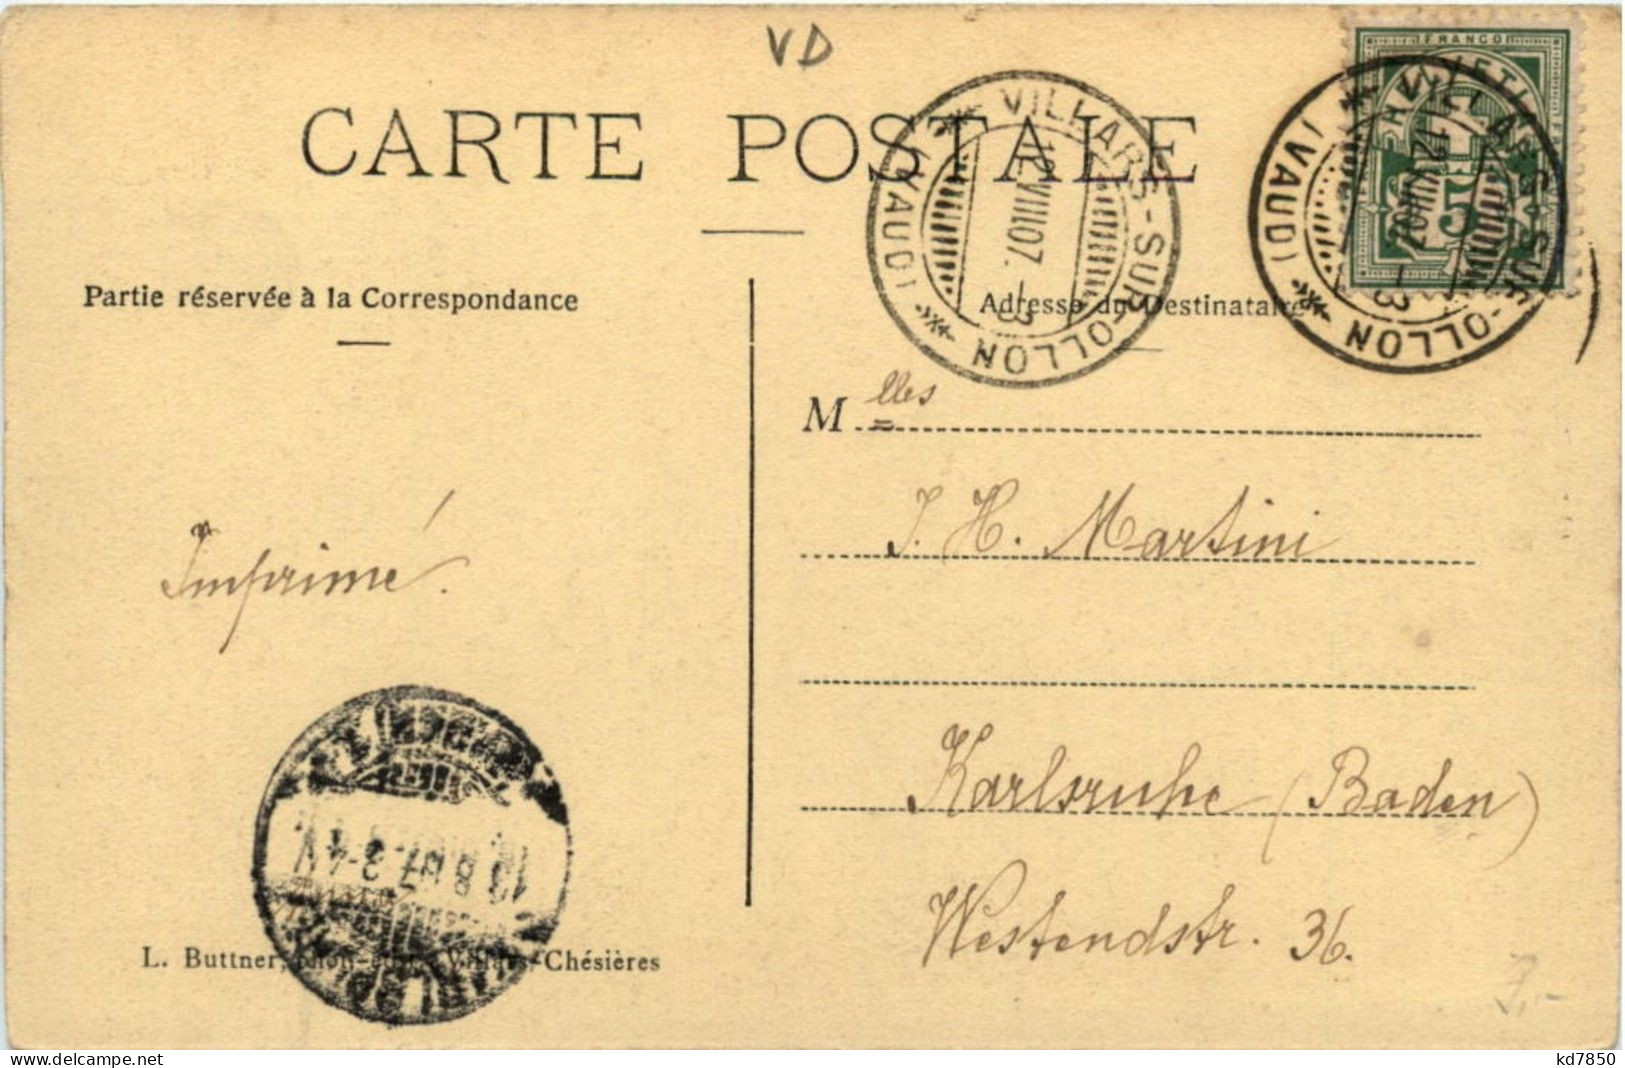 VD
CARTE POSTALE
FRANCO
HELVETIA
5
VILLARS-SUR-OLLON
(VAUD)
12.VIII07.-3
VILLARS-SUR-OLLON
(VAUD)
12.VIII07.-3
Partie réservée à la Correspondance
Adresse du Destinataire
Mlles
J. H. Martini
Imprimé.
Karlsruhe (Baden)
13.8.07.3-4N
Westendstr. 36.
L. Buttner, Villars-Chésières
kd7850